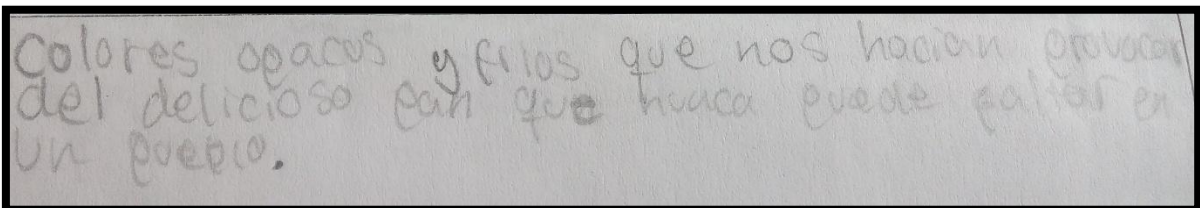 Colores opacos y frios que nos hacian provocar
del delicioso pan que nunca puede faltar en
un pueblo.